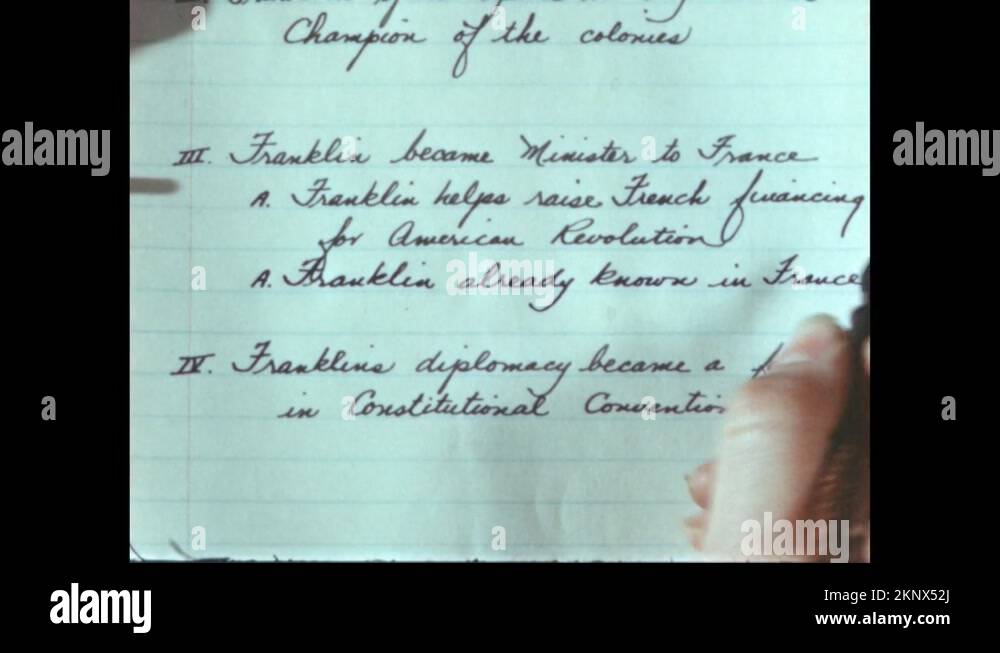 Champion of the colonies
III. Franklin became Minister to France
A. Franklin helps raise French financing
for American Revolution
A. Franklin already known in France
IV. Franklins diplomacy became a
in Constitutional Convention
alamy
alamy
Image ID: 2KNX52J
www.alamy.com